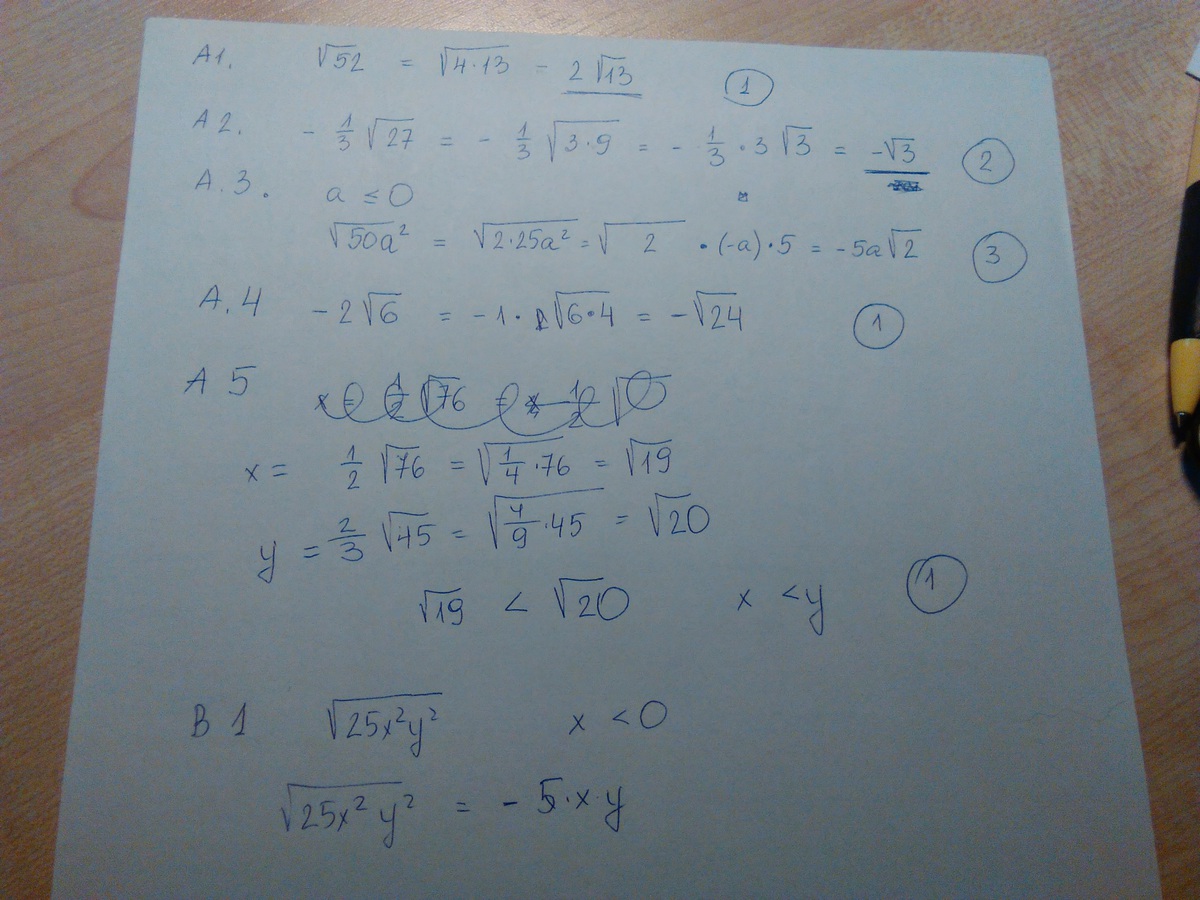 A1. √52 = √4·13 = 2√13 1
A2. - 1/3 √27 = - 1/3 √3·9 = - 1/3 · 3√3 = -√3 2
A.3. a ≤ 0
√50a² = √2·25a² = √2 ·(-a)·5 = -5a√2 3
A.4 -2√6 = -1·√6·4 = -√24 1
A 5
x = 1/2 √76 = √1/4·76 = √19
y = 2/3 √45 = √4/9·45 = √20
√19 < √20 x < y 1
B 1 √25x²y² x < 0
√25x²y² = - 5·x·y